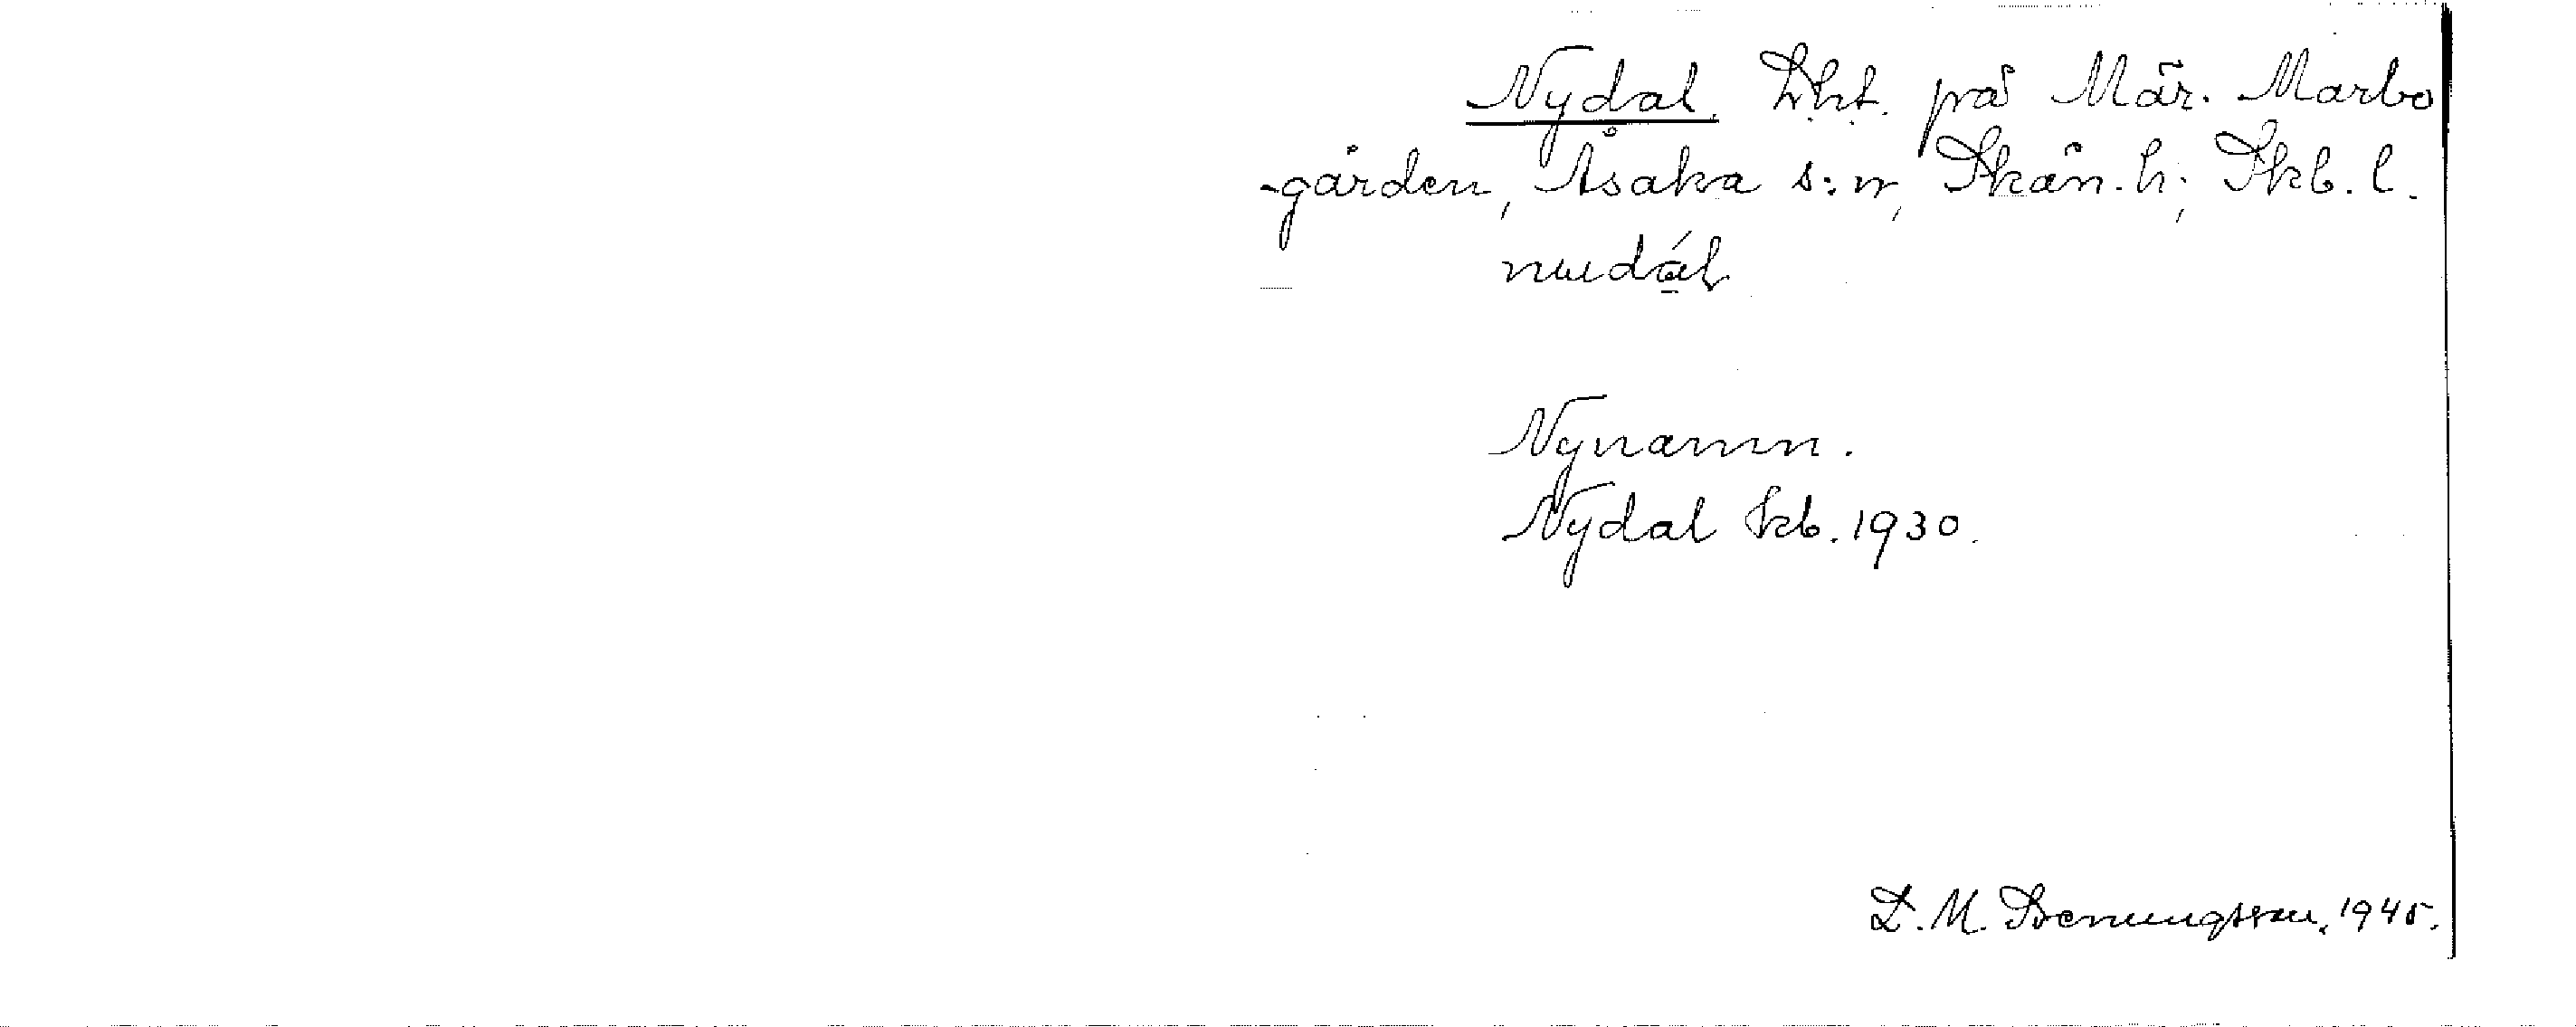 Nydal. Lht. på Mår. Marbo
-gården, Åsaka s:n, Skån. h; Skb. l.
nudál
Nynamn.
Nydal kb. 1930.
D. M. 1945.